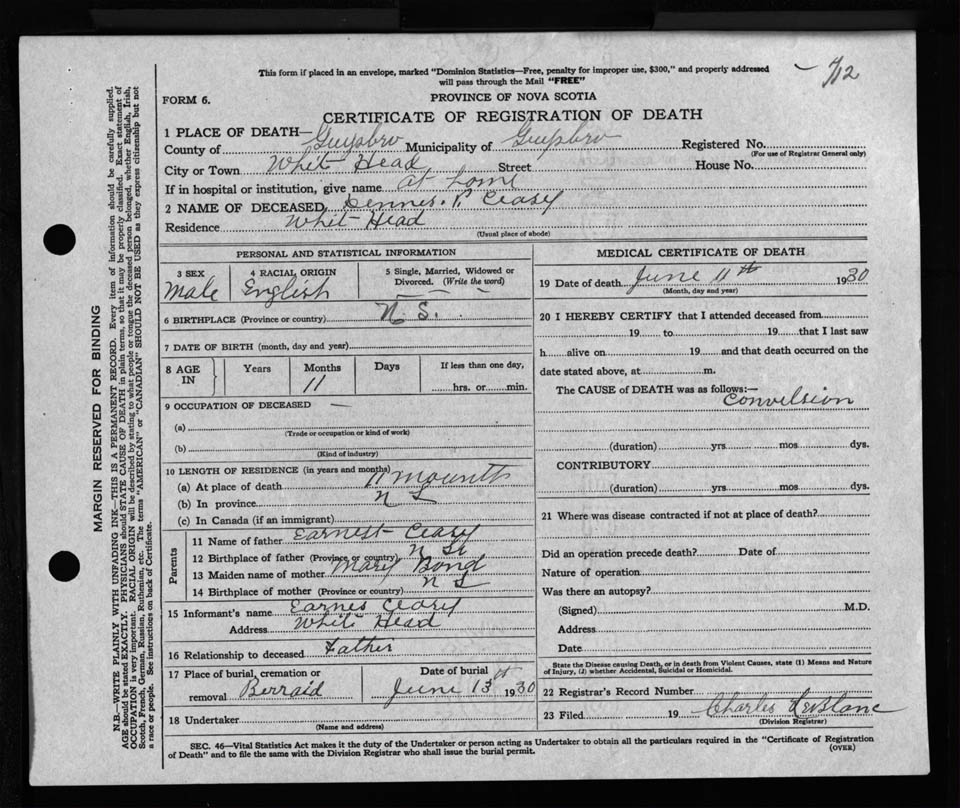 This form if placed in an envelope, marked "Dominion Statistics—Free, penalty for improper use, $300," and properly addressed
will pass through the Mail "FREE"
FORM 6.
PROVINCE OF NOVA SCOTIA
CERTIFICATE OF REGISTRATION OF DEATH
1 PLACE OF DEATH—
County of Guysbro Municipality of Guysbro Registered No.
(For use of Registrar General only)
City or Town Whit Head Street House No.
If in hospital or institution, give name at home
2 NAME OF DECEASED Dennis. P. Ceasy
Residence Whit Head
(Usual place of abode)
PERSONAL AND STATISTICAL INFORMATION
3 SEX 4 RACIAL ORIGIN 5 Single, Married, Widowed or
Divorced. (Write the word)
Male English
6 BIRTHPLACE (Province or country) N S.
7 DATE OF BIRTH (month, day and year)
8 AGE IN Years Months Days If less than one day,
11 hrs. or min.
9 OCCUPATION OF DECEASED —
(a)
(Trade or occupation or kind of work)
(b)
(Kind of industry)
10 LENGTH OF RESIDENCE (in years and months)
(a) At place of death 11 mounth
(b) In province N S
(c) In Canada (if an immigrant)
Parents
11 Name of father Earnest Ceasy
12 Birthplace of father (Province or country) N S
13 Maiden name of mother Mary Bond
14 Birthplace of mother (Province or country) N S
15 Informant's name Earnes Ceasy
Address White Head
16 Relationship to deceased Father
17 Place of burial, cremation or
removal Date of burial
June 13th 1930
18 Undertaker
(Name and address)
MEDICAL CERTIFICATE OF DEATH
19 Date of death June 11th 1930
(Month, day and year)
20 I HEREBY CERTIFY that I attended deceased from
19 to 19 that I last saw
h alive on 19 and that death occurred on the
date stated above, at m.
The CAUSE of DEATH was as follows:—
Convelsion
(duration) yrs mos dys.
CONTRIBUTORY
(duration) yrs mos dys.
21 Where was disease contracted if not at place of death?
Did an operation precede death? Date of
Nature of operation
Was there an autopsy?
(Signed) M.D.
Address
Date
State the Disease causing Death, or in death from Violent Causes, state (1) Means and Nature
of Injury, (2) whether Accidental, Suicidal or Homicidal.
22 Registrar's Record Number
23 Filed 19 Charles
(Division Registrar)
SEC. 46—Vital Statistics Act makes it the duty of the Undertaker or person acting as Undertaker to obtain all the particulars required in the "Certificate of Registration
of Death" and to file the same with the Division Registrar who shall issue the burial permit.
(OVER)
MARGIN RESERVED FOR BINDING
N.B.—WRITE PLAINLY WITH UNFADING INK—THIS IS A PERMANENT RECORD. Every item of information should be carefully supplied.
AGE should be stated EXACTLY. PHYSICIANS should STATE CAUSE OF DEATH in plain terms, so that it may be properly classified. Exact statement of
OCCUPATION is very important. RACIAL ORIGIN will be described by stating to what people or tongue the deceased person belonged, whether English, Irish,
Scotch, French, German, Russian, Ruthenian, etc. The terms "AMERICAN" or "CANADIAN" SHOULD NOT BE USED as they express citizenship but not
a race or people. See instructions on back of Certificate.